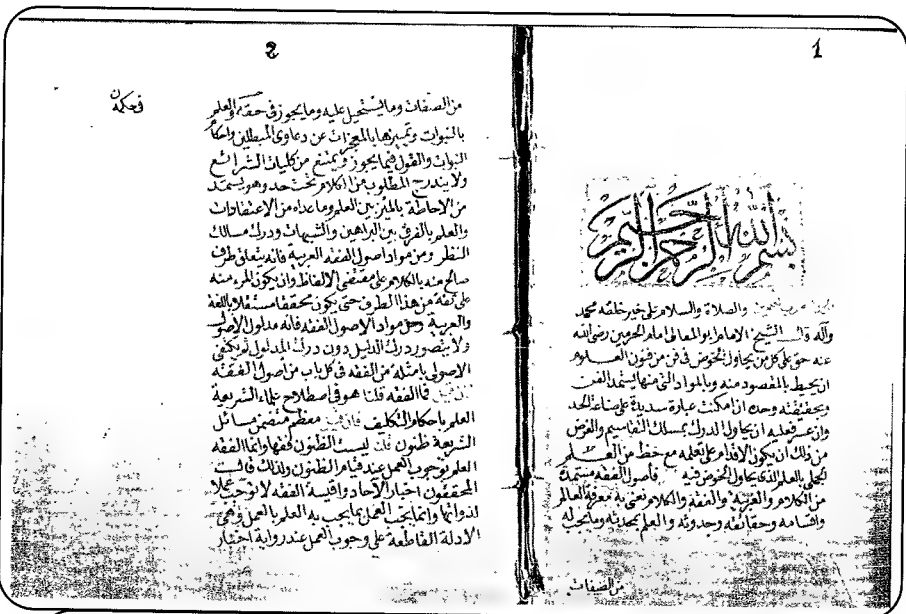 1
بسم الله الرحمن الرحيم
والصلاة والسلام على خير خلقه محمد
وآله قال الشيخ الامام ابو المعالى امام الحرمين رضى الله
عنه حق على كل من يحاول الخوض فى فن من فنون العلوم
ان يحيط بالمقصود منه وبالمواد التى منها يستمد الفن
وبحقيقته وحده ان امكنت عبارة سديدة على صناعة الحد
وان عسر فعليه ان يحاول الدرك بمسلك التقاسيم والغرض
من ذلك ان يكون الاقدام على تعلمه مع حظ من العلم
الجملى بالعلم الذى يحاول الخوض فيه فأصول الفقه مستمدة
من الكلام والعربية والفقه والكلام نعنى به معرفة العالم
واقسامه وحقائقه وحدوثه والعلم بمحدثه وما يجب له
من الصفات
2
من الصفات وما يستحيل عليه وما يجوز فى حقه والعلم
بالنبوات وتمييزها بالمعجزات عن دعاوى المبطلين واحكام
النبوات والقول فيما يجوز ويمتنع من كليات الشرائع
ولا يندرج المطلوب من الكلام تحت حد وهو يستمد
من الاحاطة بالميز بين العلم وما عداه من الاعتقادات
والعلم بالفرق بين البراهين والشبهات ودرك مسالك
النظر ومن مواد اصول الفقه العربية فانه يتعلق طرف
صالح منه بالكلام على مقتضى الالفاظ وان يكون المرء منه
على ثقة من هذا الطرف حتى يكون محققا مستقلا باللغة
والعربية ومن مواد الاصول الفقه فانه مدلول الاصول
ولا يتصور درك الدليل دون درك المدلول ثم يكتفى
الاصولى بامثلة من الفقه فى كل باب من اصول الفقه
فان قيل فما الفقه قلنا هو فى اصطلاح علماء الشريعة
العلم باحكام التكليف فان قيل معظم متضمن مسائل
الشريعة ظنون قلنا ليست الظنون فقها وانما الفقه
العلم بوجوب العمل عند قيام الظنون ولذلك قالت
المحققون اخبار الآحاد واقيسة الفقه لا توجب عملا
لذواتها وانما يجب العمل بما يجب به العلم بالعمل وهى
الادلة القاطعة على وجوب العمل عند رواية اخبار